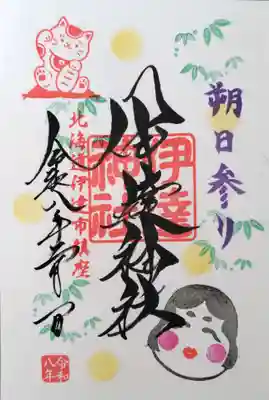 朔日参り
伊達神社
伊達神社
北海道伊達市鎮座
令和八年
令和八年